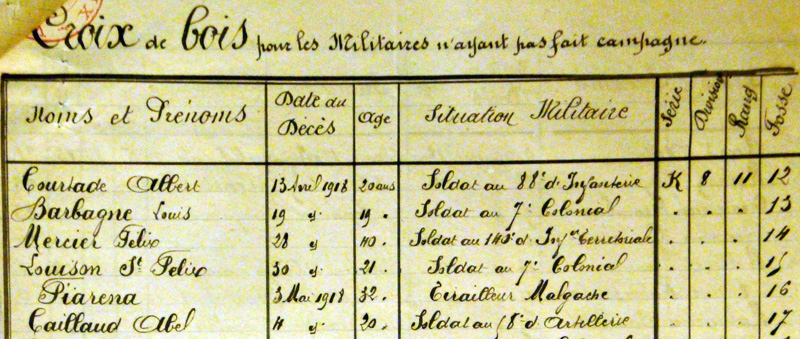 Croix de bois pour les Militaires n'ayant pas fait campagne.
Noms et Prénoms Date du Décès Age Situation Militaire Série Division Rang Fosse
Courtade Albert 13 Avril 1918 20 ans Soldat au 88e d'Infanterie K 8 11 12
Barbagne Louis 19 d° 19 " Soldat au 7e Colonial " " " 13
Mercier Felix 28 d° 40 " Soldat au 140e d' Inf.rie Territoriale " " " 14
Louison St Felix 30 d° 21 " Soldat au 7e Colonial " " " 15
Piarena 3 Mai 1918 32 " Tirailleur Malgache " " " 16
Caillaud Abel 4 d° 20 " Soldat au 18e d' Artillerie " " " 17